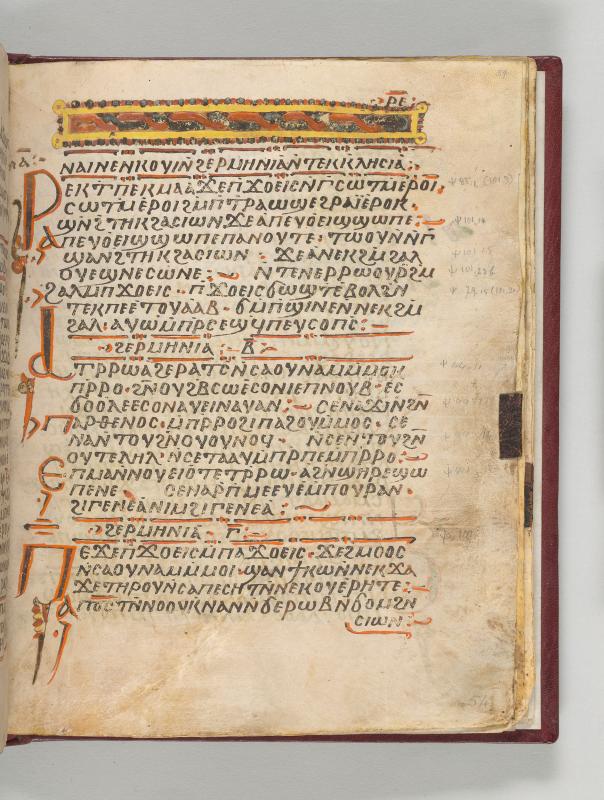 ⲣⲉ
ⲛⲁⲓⲛⲉⲛⲕⲟⲩⲓⲛϩⲉⲣⲙⲏⲛⲓⲁⲛⲧⲉⲕⲕⲗⲏⲥⲓⲁ
ⲣⲉⲕⲧⲡⲉⲕⲙⲁⲁϫⲉⲡϫⲟⲉⲓⲥⲛⲅⲥⲱⲧⲙⲉⲣⲟⲓ
ⲥⲱⲧⲙⲉⲣⲟⲓϩⲙⲡⲧⲣⲁⲱϣⲉϩⲣⲁⲓⲉⲣⲟⲕ
ϣⲛϩⲧⲏⲕϩⲁⲥⲓⲱⲛϫⲉⲁⲡⲉⲩⲟⲉⲓϣϣⲱⲡⲉ
ⲁⲡⲉⲩⲟⲉⲓϣϣⲱⲡⲉⲡⲁⲛⲟⲩⲧⲉ· ⲧⲱⲟⲩⲛⲛⲅ
ϣⲁⲛϩⲧⲏⲕϩⲁⲥⲓⲱⲛ· ϫⲉⲁⲛⲉⲕϩⲙϩⲁⲗ
ⲟⲩⲉϣⲛⲉⲥⲱⲛⲉ ⲛⲧⲉⲛⲉⲣⲣⲱⲟⲩⲣϩⲙ
ϩⲁⲗⲙⲡϫⲟⲉⲓⲥ· ⲡϫⲟⲉⲓⲥϭⲱϣⲧⲉⲃⲟⲗϩⲛ
ⲧⲉⲕⲡⲉⲉⲧⲟⲩⲁⲁⲃ· ϭⲙⲡϣⲓⲛⲉⲛⲛⲉⲕϩⲙ
ϩⲁⲗ·ⲁⲩⲱⲙⲡⲣⲥⲉϣϥⲡⲉⲩⲥⲟⲡⲥ
ϩⲉⲣⲙⲏⲛⲓⲁ ⲃ
ⲁⲧⲣⲣⲱⲁϩⲉⲣⲁⲧⲥⲛⲥⲁⲟⲩⲛⲁⲙⲙⲙⲟⲕ
ⲡⲣⲣⲟ·ϩⲛⲟⲩϩⲃⲥⲱⲉⲥⲟⲛⲓⲉⲡⲛⲟⲩⲃ·ⲉⲥ
ϭⲟⲟⲗⲉⲉⲥⲟⲛⲁⲩⲉⲓⲛⲁⲩⲁⲛ ⲥⲉⲛⲁϫⲓⲛϩⲛ
ⲡⲁⲣⲑⲉⲛⲟⲥ·ⲙⲡⲣⲣⲟϩⲓⲡⲁϩⲟⲩⲙⲙⲟⲥ·ⲥⲉ
ⲛⲁⲛⲧⲟⲩϩⲛⲟⲩⲟⲩⲛⲟϥ· ⲛⲥⲉⲛⲧⲟⲩϩⲛ
ⲟⲩⲧⲉⲗⲏⲗ·ⲛⲥⲉⲧⲁⲁⲩⲙⲡⲣⲡⲉⲙⲡⲣⲣⲟ
ⲉⲡⲙⲁⲛⲛⲟⲩⲉⲓⲟⲧⲉⲧⲣⲣⲱ·ⲁϩⲛϣⲏⲣⲉϣⲱ
ⲡⲉⲛⲉ ⲥⲉⲛⲁⲣⲡⲙⲉⲉⲩⲉⲙⲡⲟⲩⲣⲁⲛ·
ϩⲓⲅⲉⲛⲉⲁⲛⲓⲙϩⲓⲅⲉⲛⲉⲁ
ϩⲉⲣⲙⲏⲛⲓⲁ ⲅ
ⲡⲉϫⲉⲡϫⲟⲉⲓⲥⲙⲡⲁϫⲟⲉⲓⲥ·ϫⲉϩⲙⲟⲟⲥ
ⲛⲥⲁⲟⲩⲛⲁⲙⲙⲙⲟⲓ·ϣⲁⲛϯⲕⲱⲛⲛⲉⲕϫⲁ
ϫⲉⲧⲏⲣⲟⲩⲛⲥⲁⲡⲉⲥⲏⲧⲛⲛⲉⲕⲟⲩⲉⲣⲏⲧⲉ
ⲧⲛⲛⲟⲟⲩⲕⲛⲁⲛⲛϭⲉⲣⲱⲃⲛϭⲟⲙϩⲛ
ⲥⲓⲱⲛ